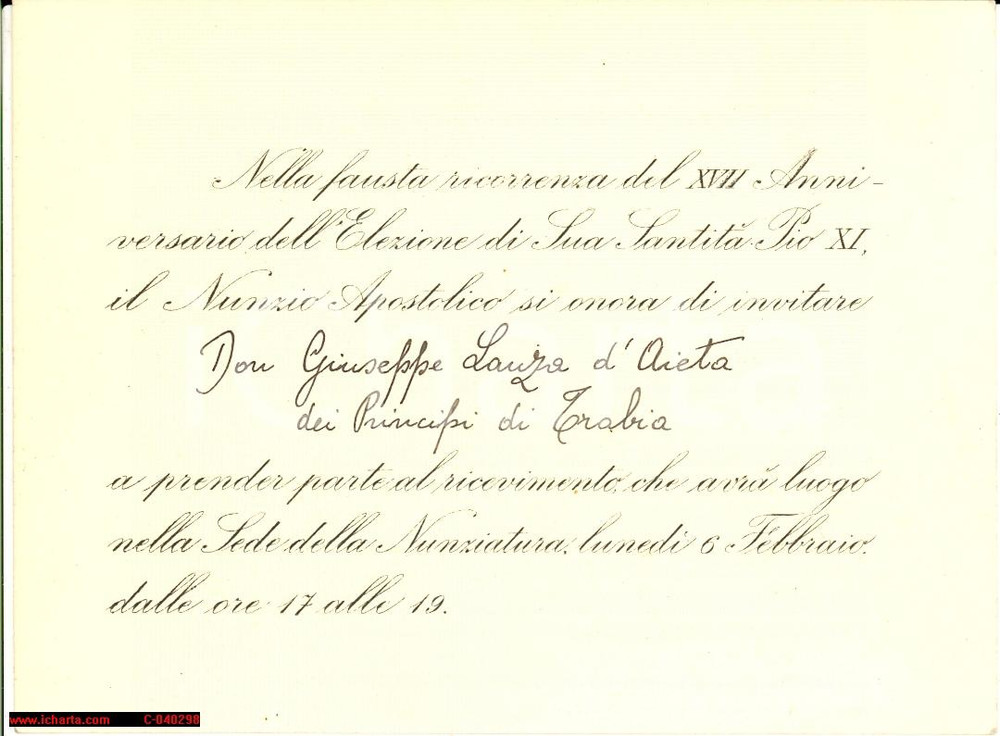 Nella fausta ricorrenza del XVII Anni-
versario dell'Elezione di Sua Santità Pio XI,
il Nunzio Apostolico si onora di invitare
Don Giuseppe Lanza d'Aieta
dei Principi di Trabia
a prender parte al ricevimento, che avrà luogo
nella Sede della Nunziatura, lunedì 6 Febbraio,
dalle ore 17 alle 19.
www.icharta.com C-040298